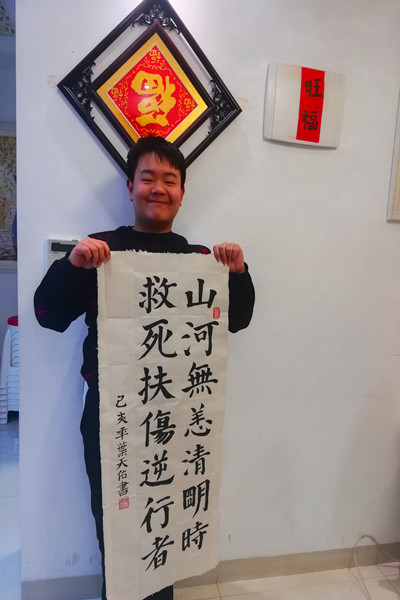 福
旺福
山河無恙清明時
救死扶傷逆行者
己亥年葉天佑書